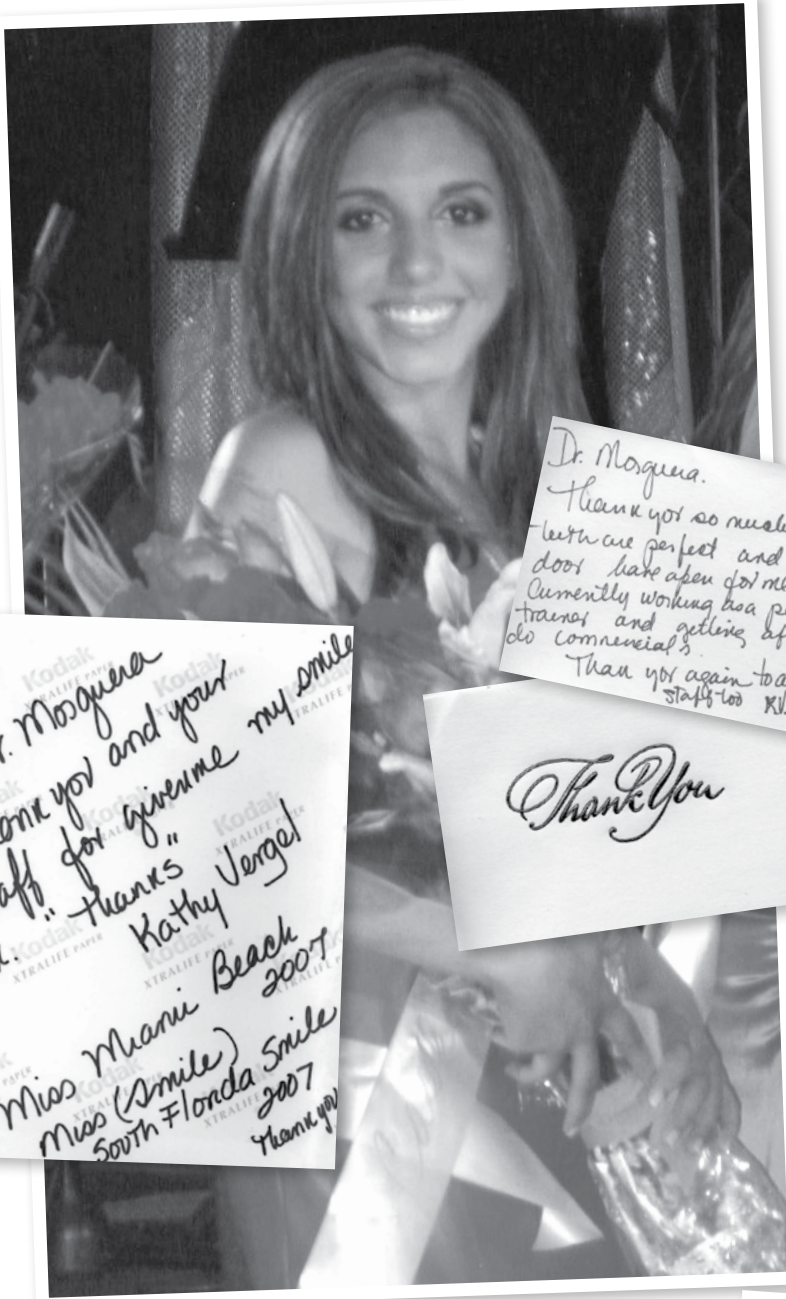 Dr. Mosquera.
Thank you so much
teeth are perfect and
door have open for me
Currently working as a
trainer and getting
do commercials.
Thank you again to
staff too
Thank You
Mosquera
you and your
for giverme my smile
"thanks"
Kathy Vergel
Miss Miami Beach
2007
Miss (Smile)
South Florida Smile
2007
Thank you
Kodak
XTRALIFE PAPER